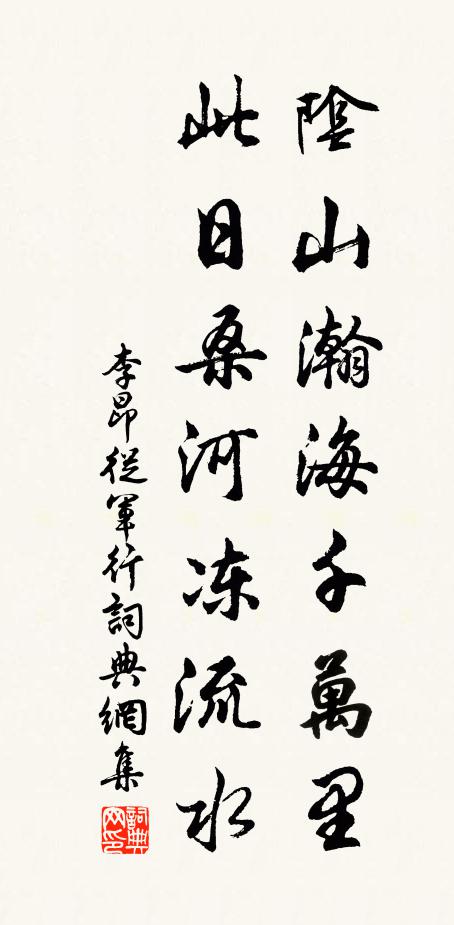 陰山瀚海千萬里
此日桑河冻流水
李昂從軍行詞典網集
詞典网印